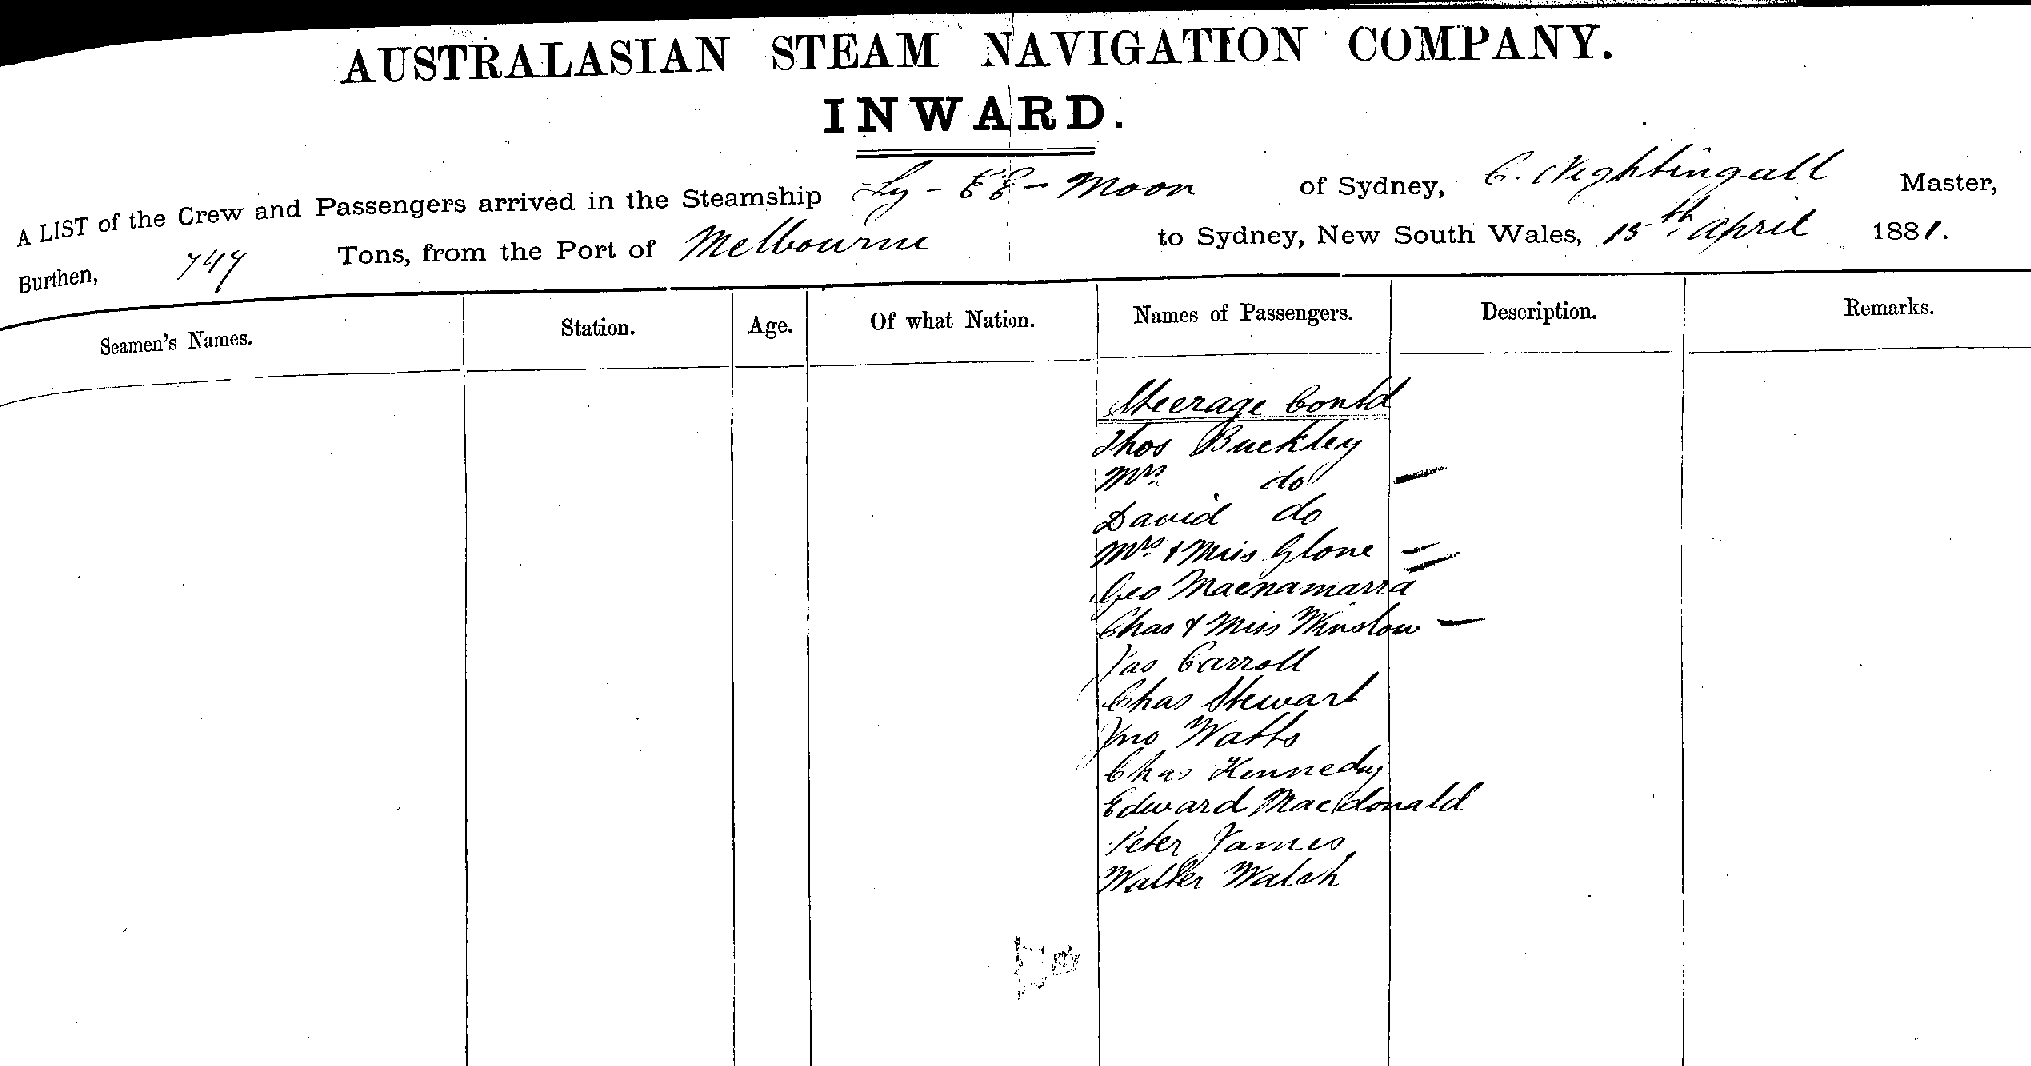 AUSTRALASIAN STEAM NAVIGATION COMPANY.
INWARD.
A LIST of the Crew and Passengers arrived in the Steamship Ly-EE-Moon of Sydney, G. Nightingall Master,
Burthen, 747 Tons, from the Port of Melbourne to Sydney, New South Wales, 15th April 1881.
Seamen's Names. Station. Age. Of what Nation. Names of Passengers. Description. Remarks.
Steerage Contd
Thos Buckley
Mrs do —
David do
Mrs & Miss Glone —
Geo Macnamarra —
Chas & Miss Winslow —
Jas Carroll
Chas Stewart
Jno Watts
Chas Kennedy
Edward Macdonald
Peter James
Walter Walsh